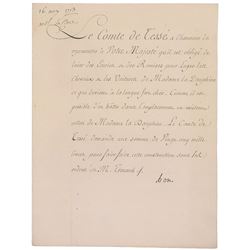 16 may 1773
Le Comte de Tessé a l'honneur de
représenter à Votre Majesté qu'il est obligé de
louer des Ecuries et des Remises pour loger les
chevaux et les Voitures de Madame la Dauphine
ce qui devient à la longue fort cher. Comme il est
de Madame la Dauphine. Le Comte de
Tessé demande une somme de Vingt cinq mille
livres pour faire faire cette construction sous les
ordres de M.
bon